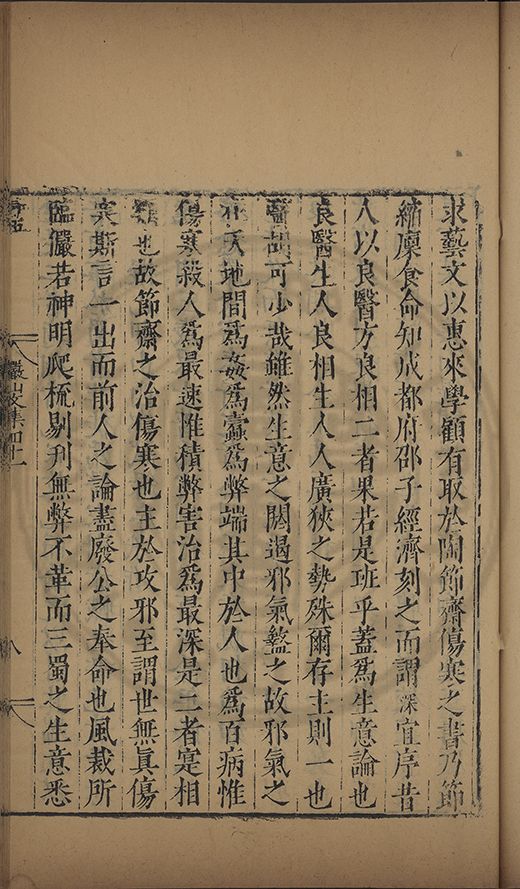 求藝文以惠來學顧有取於陶節齋傷寒之書乃節
縮廩食命知成都府邵子經濟刻之而謂深宜序昔
人以良醫方良相二者果若是班乎蓋爲生意論也
良醫生人良相生人人廣狹之勢殊爾存主則一也
醫胡可少哉雖然生意之閼遏邪氣盭之故邪氣之
在天地間爲姦爲蠹爲弊端其中於人也爲百病惟
傷寒殺人爲最速惟積弊害治爲最深是二者寔相
類也故節齋之治傷寒也主於攻邪至謂世無眞傷
寒斯言一出而前人之論盡廢公之奉命也風裁所
臨儼若神明爬梳剔刋無弊不革而三蜀之生意悉
儼山文集四十一
八